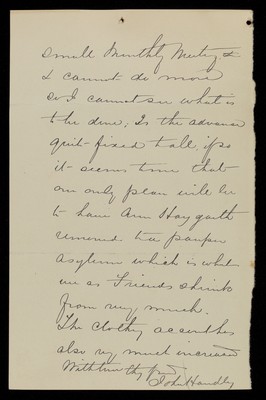 small Monthly Meeting, &
I cannot do more
so I cannot see what is
to be done; Is the advance
quite fixed to all, if so
it seems time that
our only plan will be
to have Ann Haygarth
removed to a pauper
asylum which is what
we as Friends shrink
from very much.
The Clothing account has
also very much increased
With love thy frd
John Handley